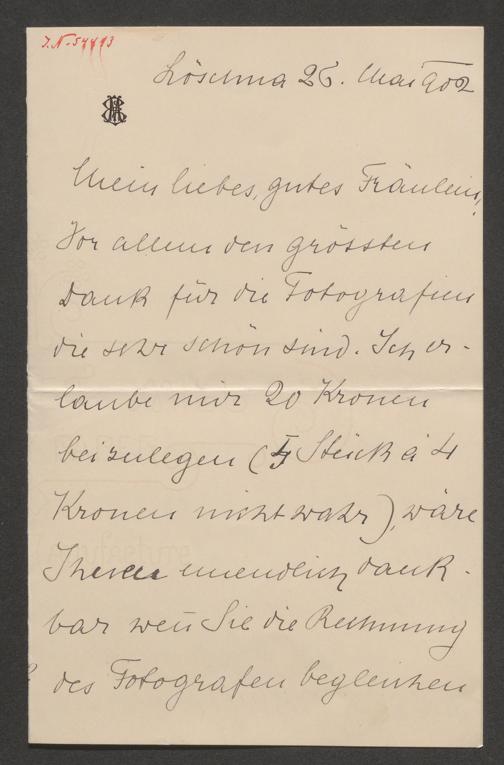 J.N. 54493
Löschna 26. Mai 902
Mein liebes, gutes Fräulein,
Vor allem den grössten
Dank für die Fotografien
die sehr schön sind. Ich er-
laube mir 20 Kronen
beizulegen (5 Stück à 4
Kronen nicht wahr), wäre
Ihnen unendlich dank-
bar wen̄ Sie die Rechnung
des Fotografen begleichen